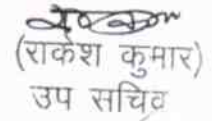 (राकेश कुमार)
उप सचिव